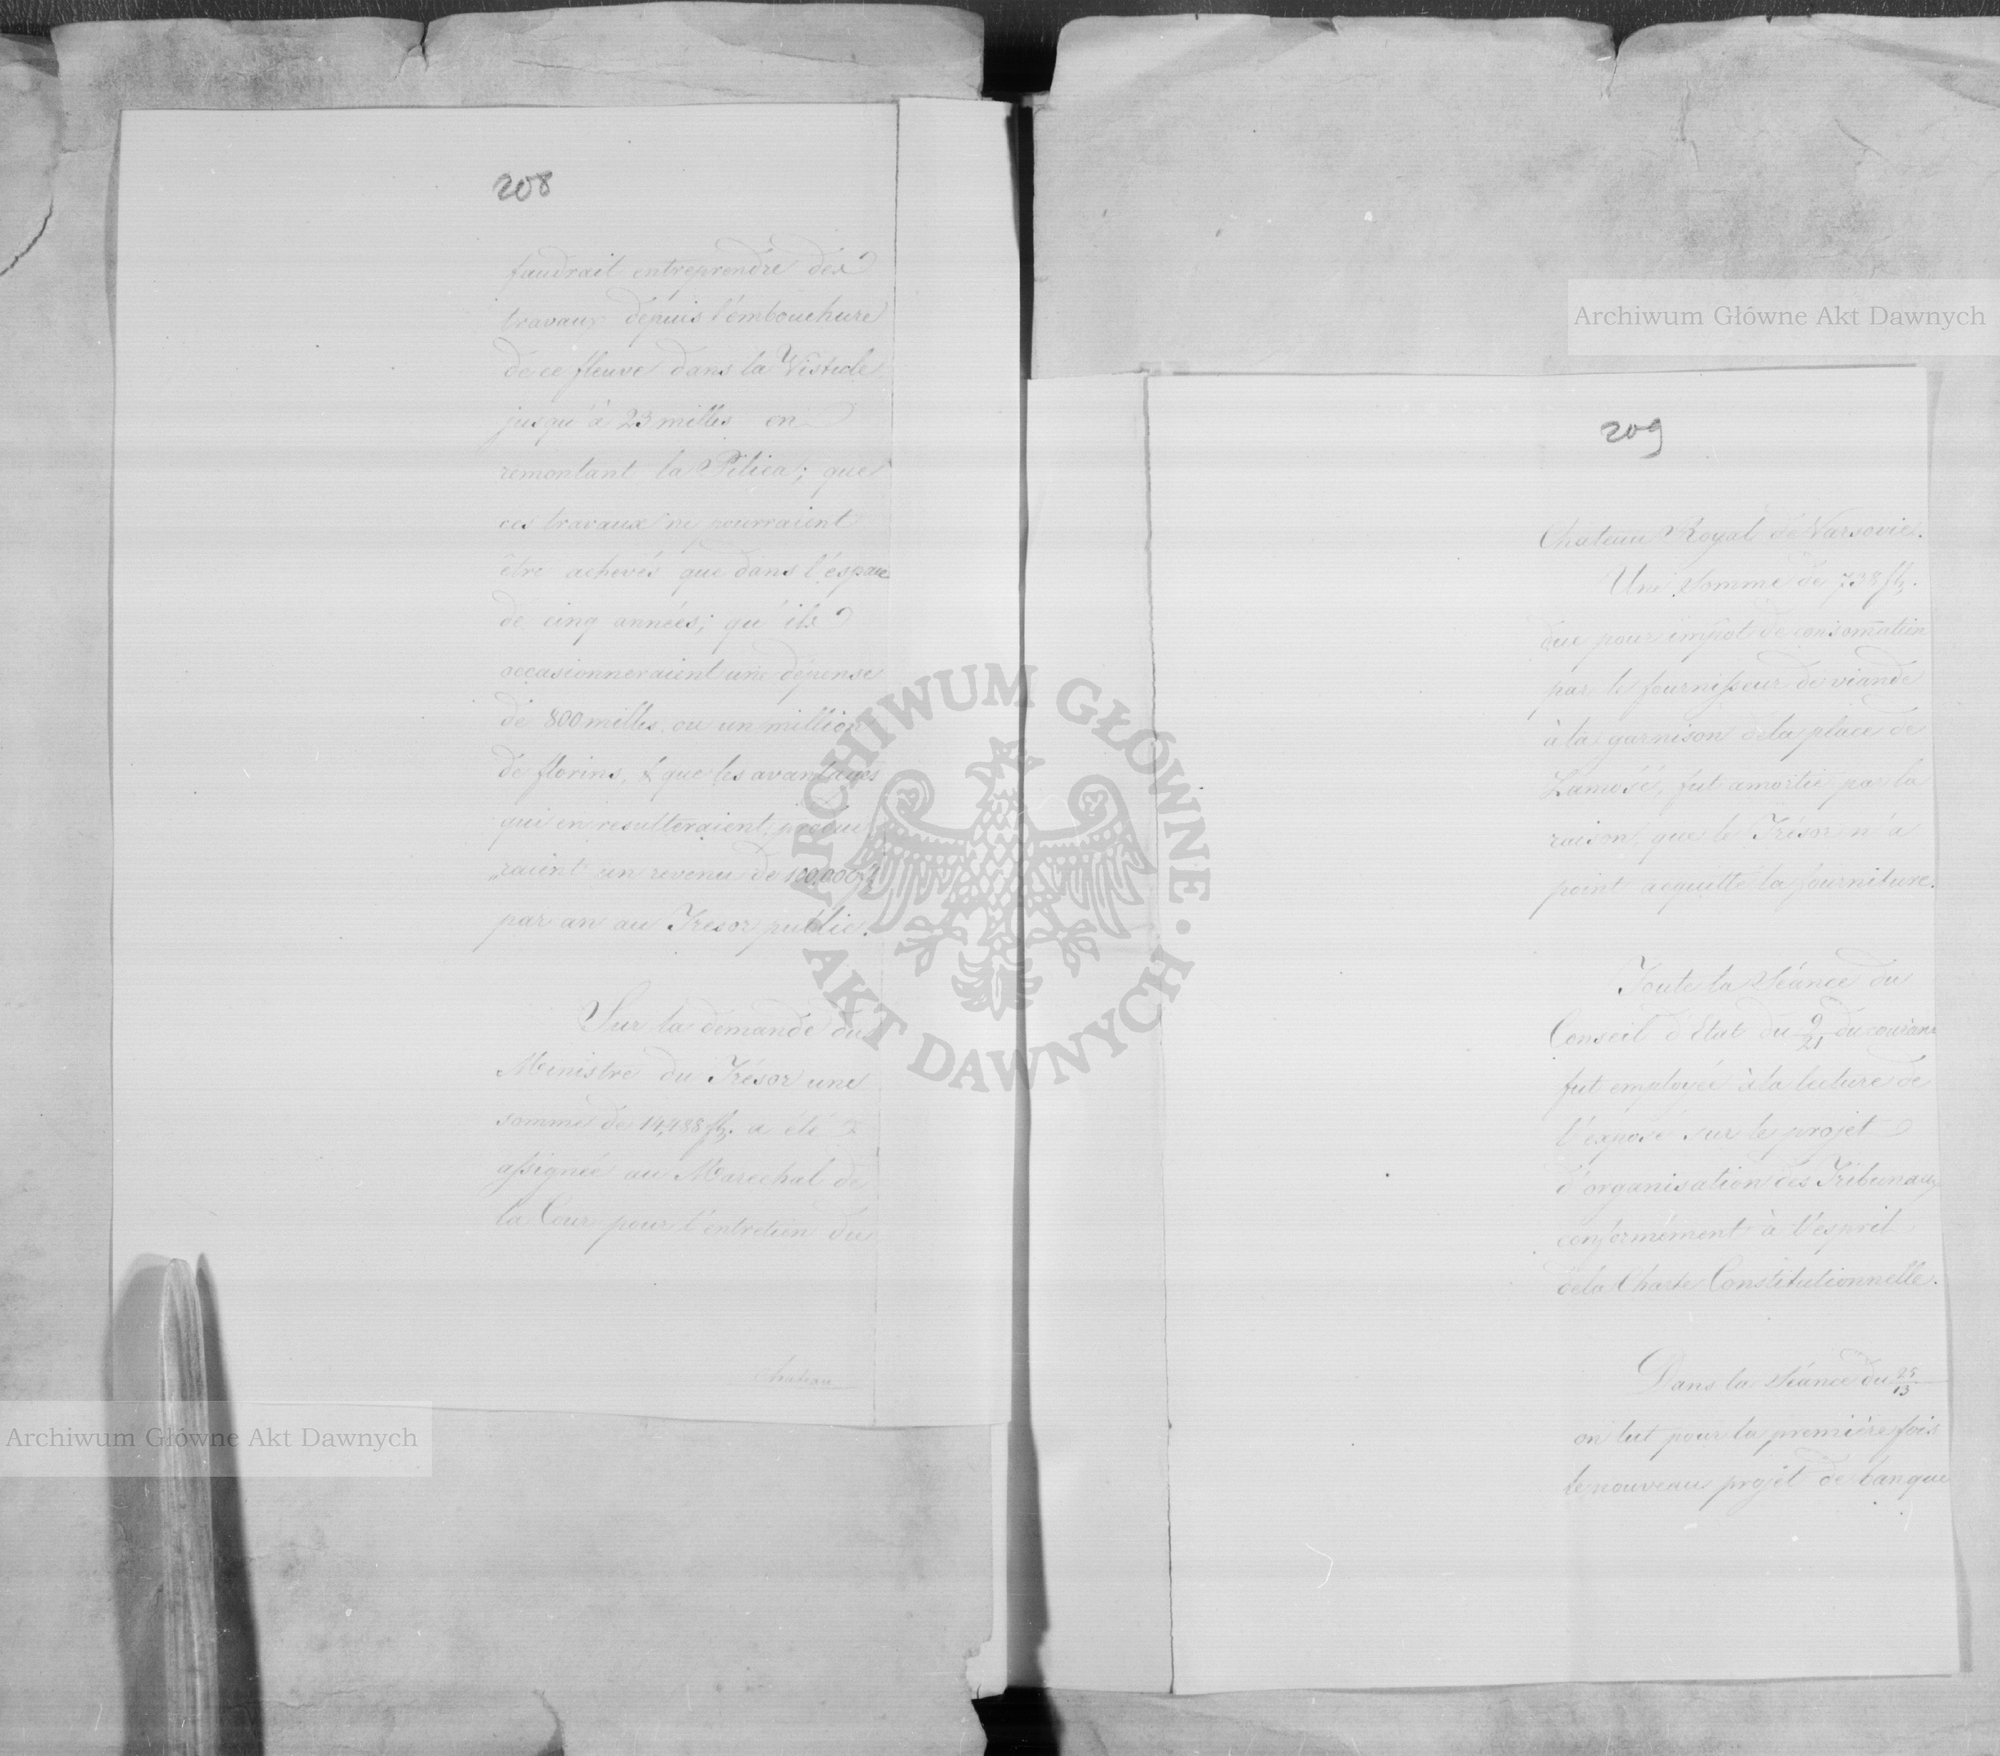 208
faudrait entreprendre des
travaux depuis l'embouchure
de ce fleuve dans la Vistule
jusqu'à 23 milles en
remontant la Pilica; que
ces travaux ne pourraient
être achevés que dans l'éspace
de cinq années; qu'ils
occasionneraient une dépense
de 800 milles ou un million
de florins, & que les avantages
qui en resulteraient, produi
„raient un revenu de 100,000 fl.
par an au Tresor public.
Sur la demande du
Ministre du Trésor une
somme de 14,488 fl. a été
assignée au Marechal de
la Cour pour l'entretien du
Chateau
209
Chateau Royal de Varsovie.
Une somme de 738 fl.
due pour impot de consomation
par le fournisseur de viande
à la garnison de la place de
Zamość, fut amortie par la
raison, que le Trésor n'a
point acquitté la fourniture.
Toute la Séance du
Conseil d'Etat du 9/21 du courant
fut employée à la lecture de
l'exposé sur le projet
d'organisation des Tribunaux
conformément à l'esprit
de la Charte Constitutionnelle.
Dans la Séance du 25/13
on lut pour la première fois
le nouveau projet de banque
Archiwum Główne Akt Dawnych
Archiwum Główne Akt Dawnych
ARCHIWUM GŁÓWNE AKT DAWNYCH